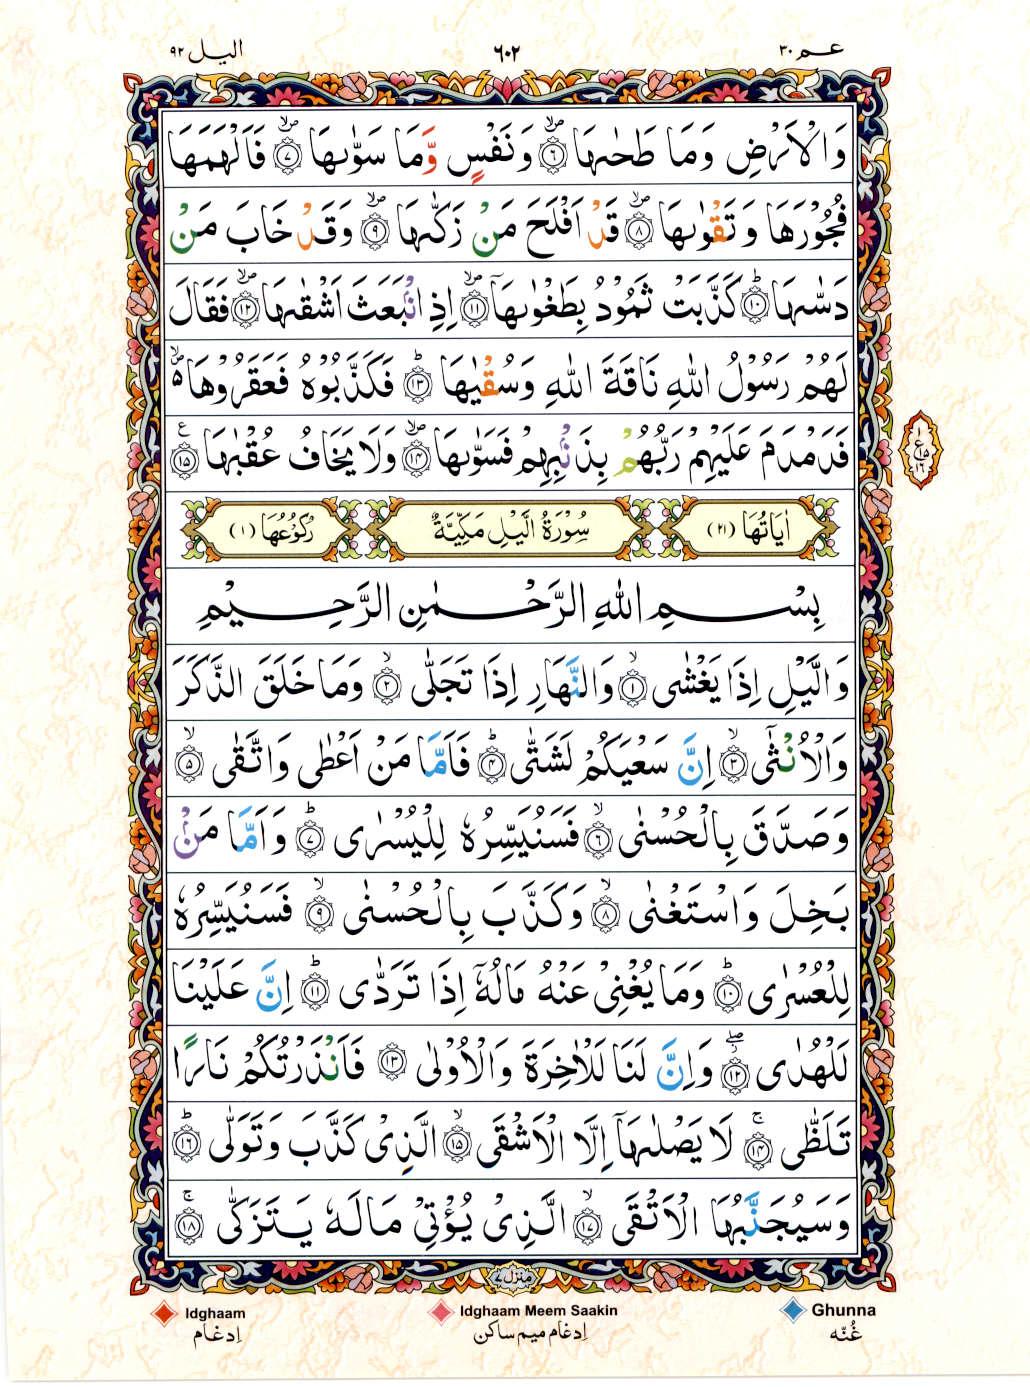 عم ٣٠
٦٠٢
اليل ٩٢
وَالْاَرْضِ وَمَا طَحٰىهَا ۪ۙ ﴿٦﴾ وَنَفْسٍ وَّمَا سَوّٰىهَا ۪ۙ ﴿٧﴾ فَاَلْهَمَهَا
فُجُوْرَهَا وَتَقْوٰىهَا ۪ۙ ﴿٨﴾ قَدْ اَفْلَحَ مَنْ زَكّٰىهَا ۪ۙ ﴿٩﴾ وَقَدْ خَابَ مَنْ
دَسّٰىهَا ؕ ﴿١٠﴾ كَذَّبَتْ ثَمُوْدُ بِطَغْوٰىهَاۤ ۪ۙ ﴿١١﴾ اِذِ انْۢبَعَثَ اَشْقٰىهَا ۪ۙ ﴿١٢﴾ فَقَالَ
لَهُمْ رَسُوْلُ اللّٰهِ نَاقَةَ اللّٰهِ وَسُقْيٰهَا ؕ ﴿١٣﴾ فَكَذَّبُوْهُ فَعَقَرُوْهَا ۪ۙ ۵
فَدَمْدَمَ عَلَيْهِمْ رَبُّهُمْ بِذَنْۢبِهِمْ فَسَوّٰىهَا ۪ۙ ﴿١٤﴾ وَلَا يَخَافُ عُقْبٰهَا ﴿١٥﴾ ع
١
ع
١٥
١٦
اٰيَاتُهَا (٢١) سُوْرَةُ الَّيْلِ مَكِّيَّةٌ رُكُوْعُهَا (١)
بِسْمِ اللّٰهِ الرَّحْمٰنِ الرَّحِيْمِ
وَالَّيْلِ اِذَا يَغْشٰى ۙ ﴿١﴾ وَالنَّهَارِ اِذَا تَجَلّٰى ۙ ﴿٢﴾ وَمَا خَلَقَ الذَّكَرَ
وَالْاُنْثٰٓى ۙ ﴿٣﴾ اِنَّ سَعْيَكُمْ لَشَتّٰى ؕ ﴿٤﴾ فَاَمَّا مَنْ اَعْطٰى وَاتَّقٰى ۙ ﴿٥﴾
وَصَدَّقَ بِالْحُسْنٰى ۙ ﴿٦﴾ فَسَنُيَسِّرُهٗ لِلْيُسْرٰى ؕ ﴿٧﴾ وَاَمَّا مَنْۢ
بَخِلَ وَاسْتَغْنٰى ۙ ﴿٨﴾ وَكَذَّبَ بِالْحُسْنٰى ۙ ﴿٩﴾ فَسَنُيَسِّرُهٗ
لِلْعُسْرٰى ؕ ﴿١٠﴾ وَمَا يُغْنِيْ عَنْهُ مَالُهٗۤ اِذَا تَرَدّٰى ؕ ﴿١١﴾ اِنَّ عَلَيْنَا
لَلْهُدٰى ۖ ﴿١٢﴾ وَاِنَّ لَنَا لَلْاٰخِرَةَ وَالْاُوْلٰى ﴿١٣﴾ فَاَنْذَرْتُكُمْ نَارًا
تَلَظّٰى ۚ ﴿١٤﴾ لَا يَصْلٰىهَاۤ اِلَّا الْاَشْقَى ۙ ﴿١٥﴾ الَّذِيْ كَذَّبَ وَتَوَلّٰى ؕ ﴿١٦﴾
وَسَيُجَنَّبُهَا الْاَتْقَى ۙ ﴿١٧﴾ الَّذِيْ يُؤْتِيْ مَالَهٗ يَتَزَكّٰى ۚ ﴿١٨﴾
منزل ٧
Idghaam Idghaam Meem Saakin Ghunna
اِدغَام اِدغَام ميم ساكن غُنّه